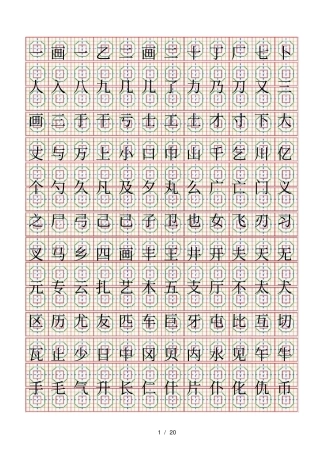 一画一乙二画二十丁厂七卜
人入八九几儿了力乃刀又三
画三于干亏士工土才寸下大
丈与万上小口巾山千乞川亿
个勺久凡及夕丸么广亡门义
之尸弓己已子卫也女飞刃习
叉马乡四画丰王井开夫天无
元专云扎艺木五支厅不太犬
区历尤友匹车巨牙屯比互切
瓦止少日中冈贝内水见午牛
手毛气升长仁什片仆化仇币
1 / 20